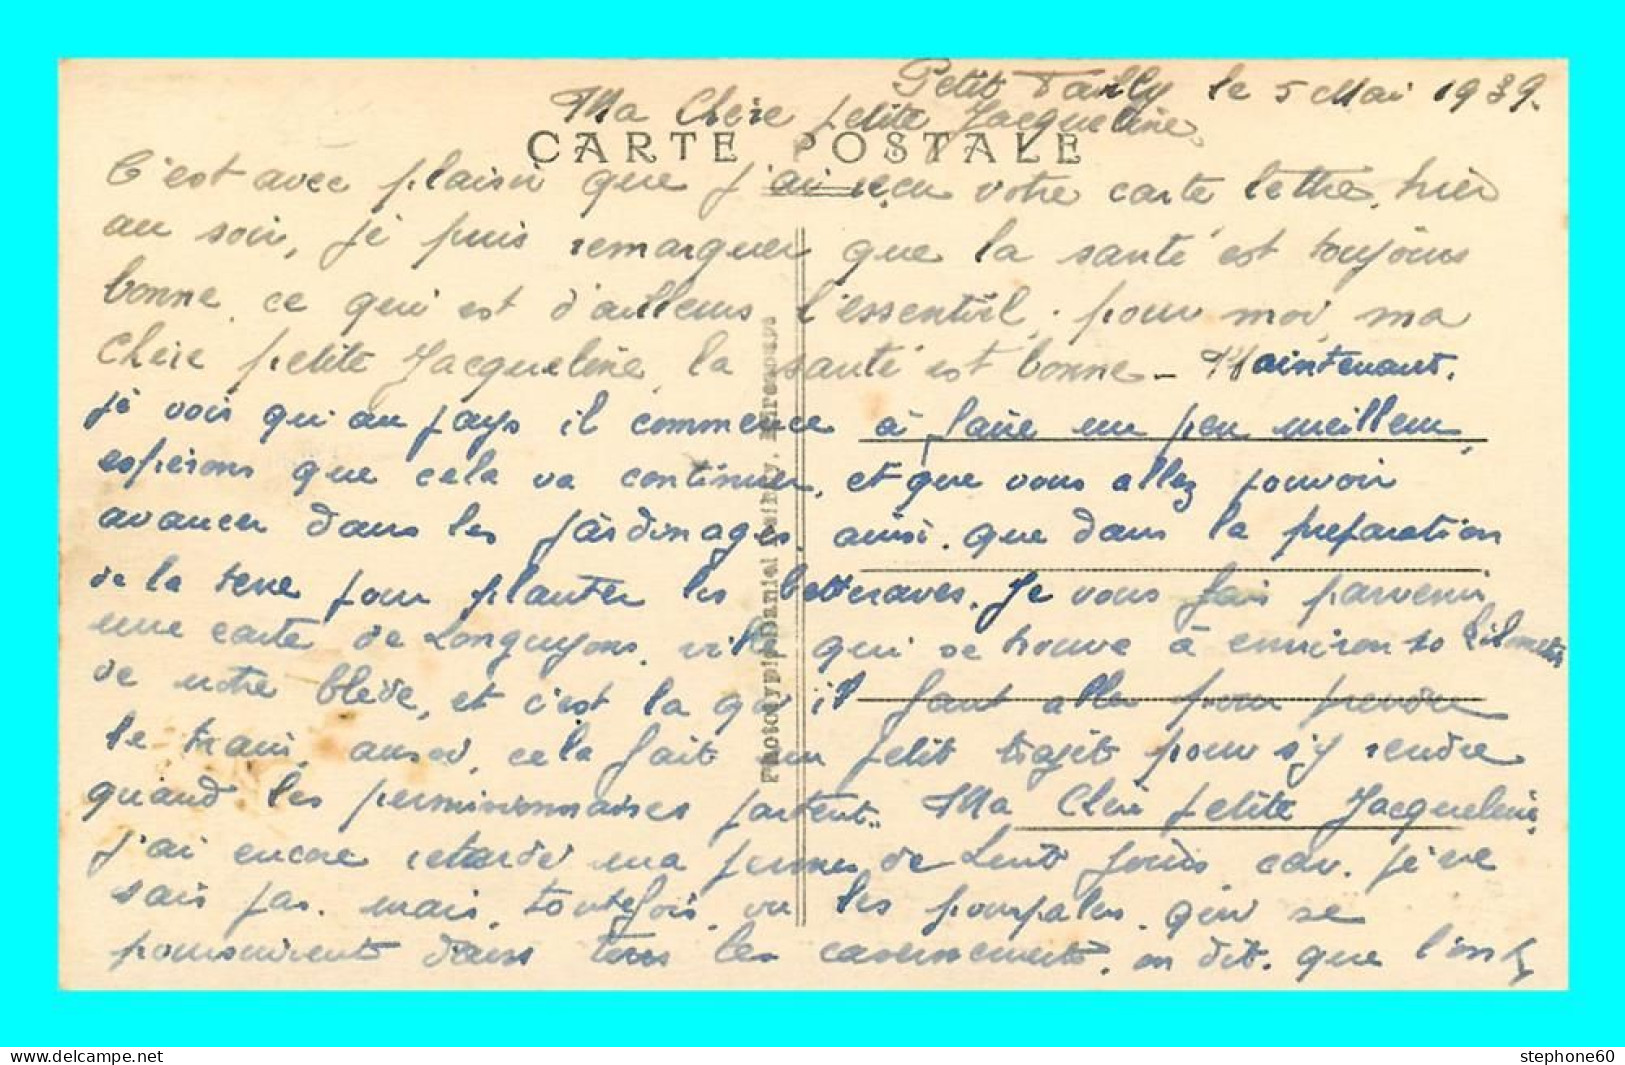 Petit Failly le 5 Mai 1939.
Ma Chère petite Jacqueline,
CARTE POSTALE
C'est avec plaisir que j'ai reçu votre carte lettre, hier
au soir, je puis remarquer que la santé est toujours
bonne, ce qui est d'ailleurs l'essentiel, pour moi, ma
Chère petite Jacqueline, la santé est bonne - Maintenant,
je vois qu'au pays il commence à faire un peu meilleur,
espérons que cela va continuer, et que vous allez pouvoir
avancer dans les jardinages, ainsi que dans la preparation
de la terre pour planter les betteraves. Je vous fais parvenir
une carte de Longuyons, ville qui se trouve à environ 10 kilometres
de notre blède, et c'est la qu'il faut aller pour prendre
le train, aussi, cela fait un petit trajet pour s'y rendre
quand les permissionnaires partent.. Ma Chère petite Jacqueline,
j'ai encore retardé ma de jours car, je ne
sais pas, mais, toutefois, vu les pourpalus, qui se
poursuivent dans tous les, on dit, que l'on
Phototypie Daniel
stephone60
www.delcampe.net